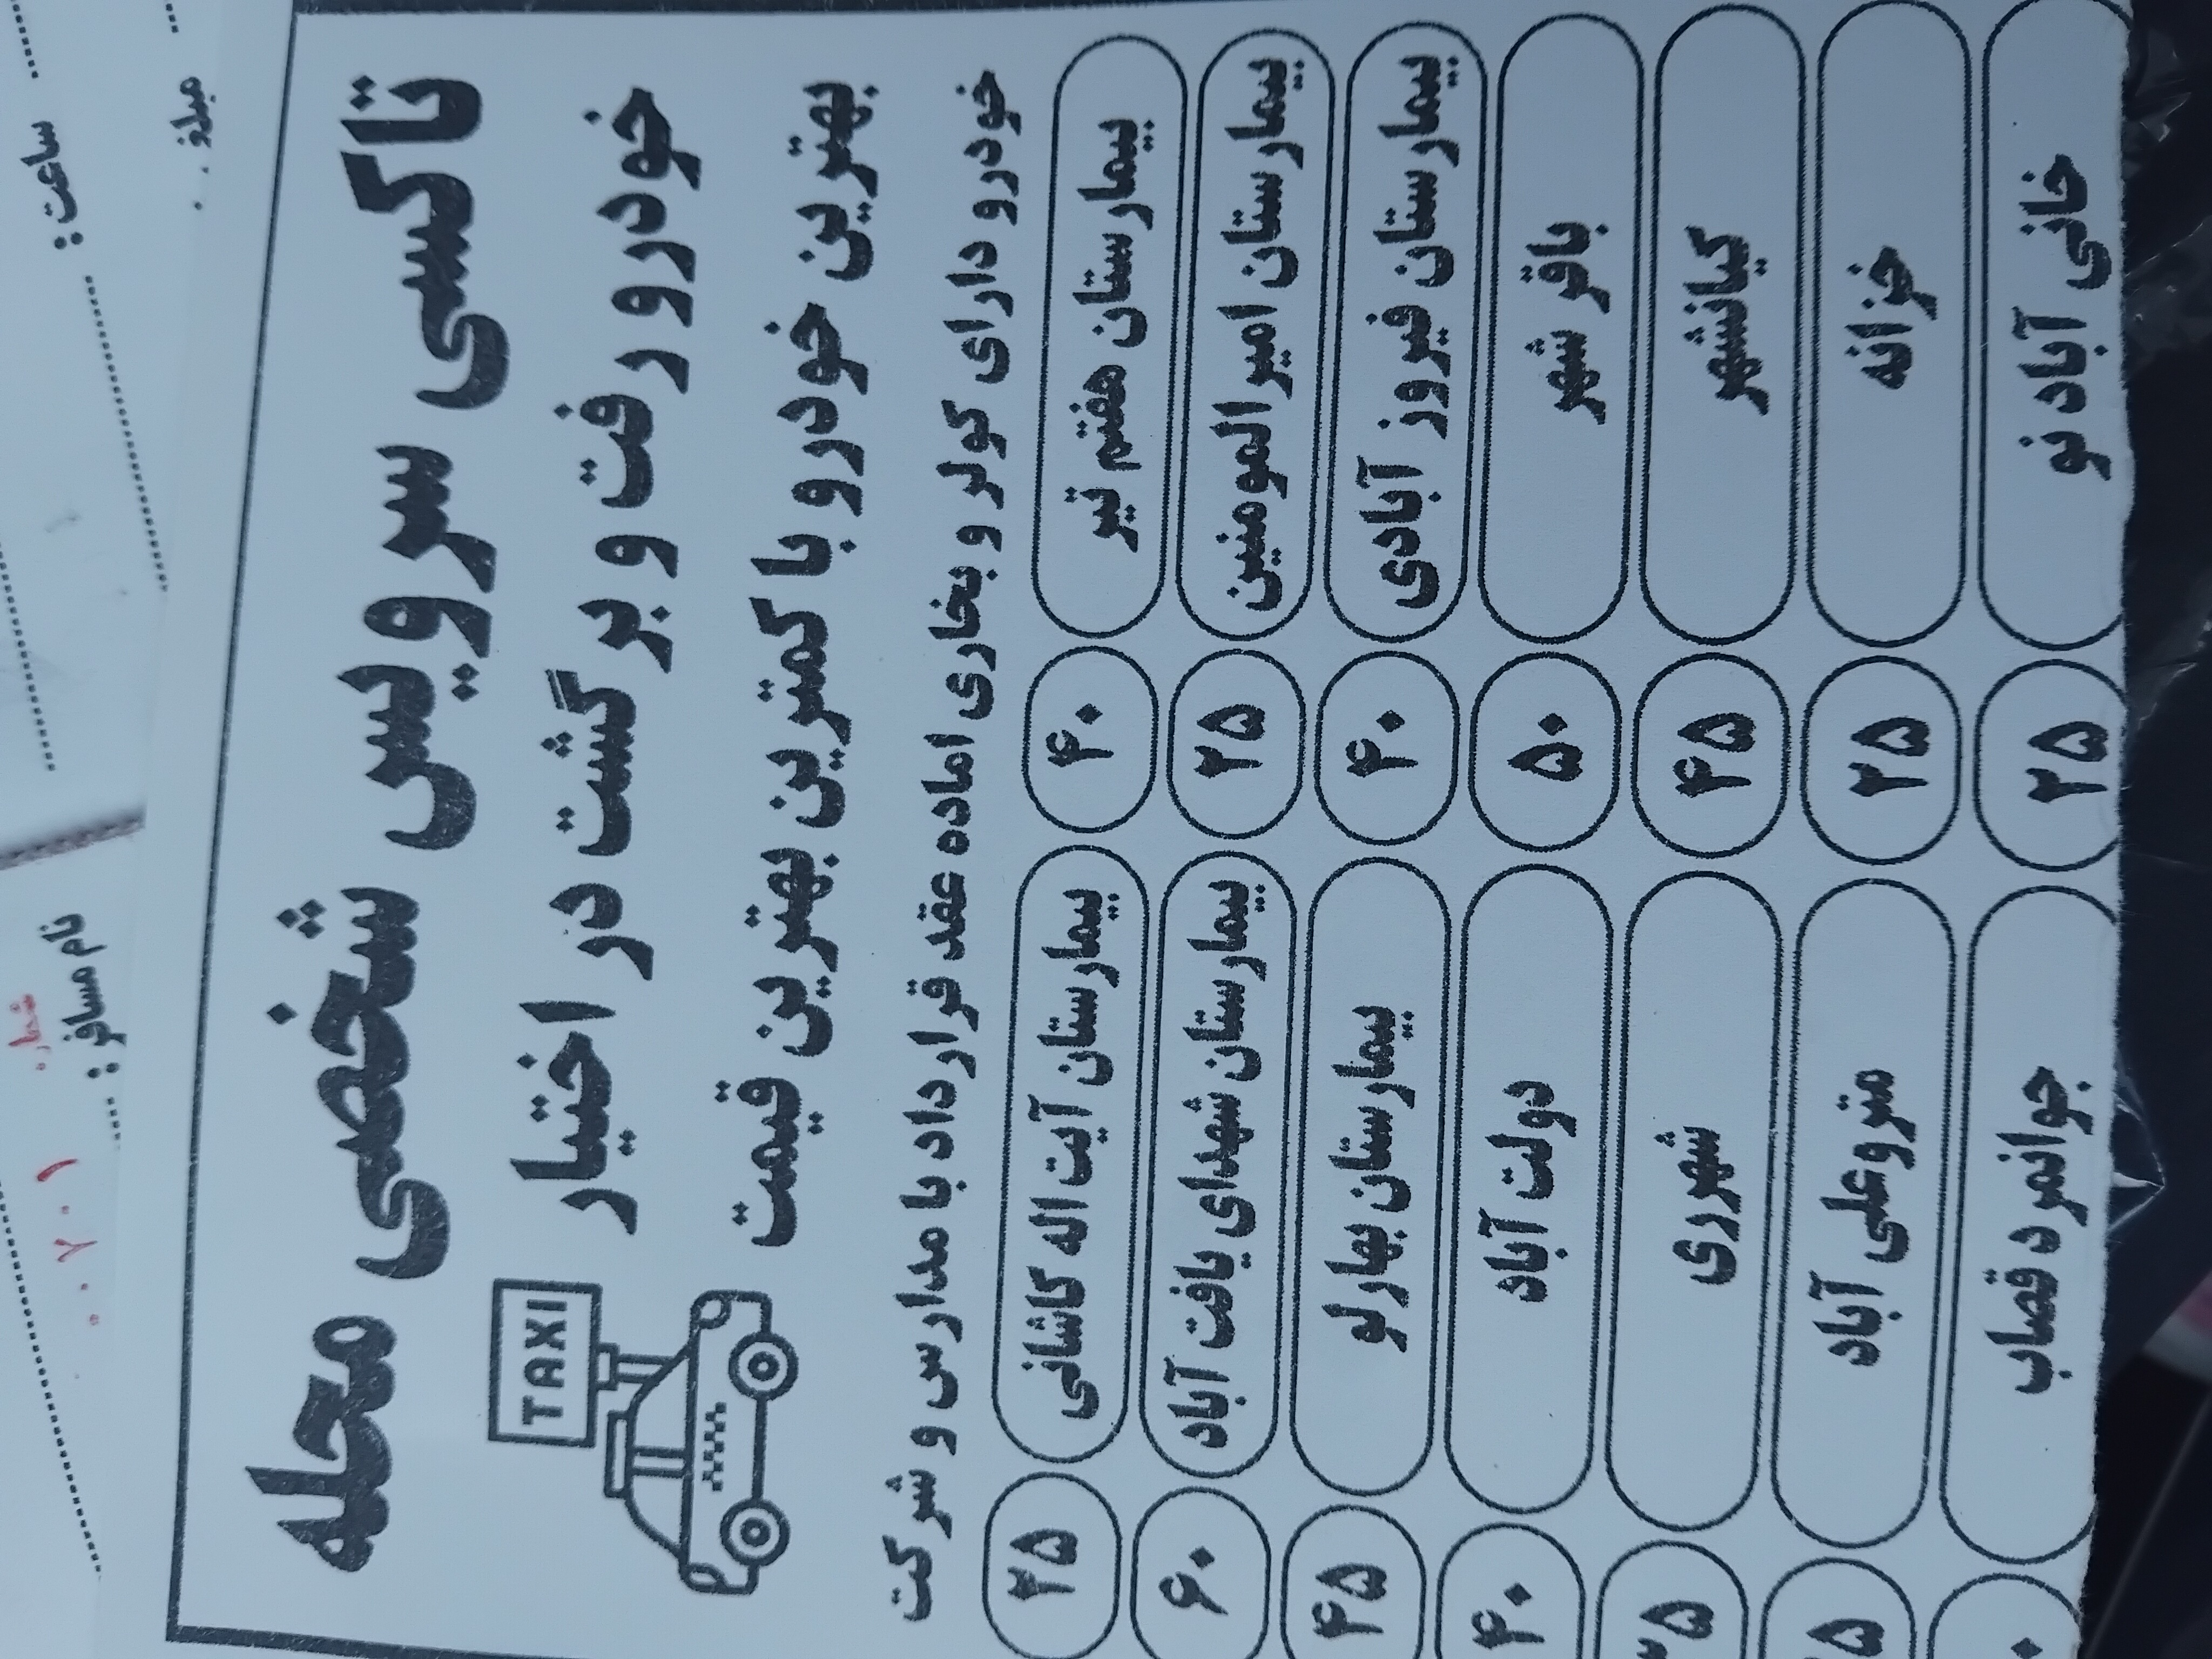 ساعت:
مبلغ
نام مسافر:
شماره
۰۰۷۰۱
تاکسی سرویس شخصی محله
خودرو رفت و برگشت در اختیار
بهترین خودرو با کمترین بهترین قیمت
TAXI
خودرو دارای کولر و بخاری اماده عقد قرارداد با مدارس و شرکت
بیمارستان هفتم تیر ۴۰ بیمارستان آیت اله کاشانی ۲۵
بیمارستان امیرالمومنین ۲۵ بیمارستان شهدای یافت آباد ۶۰
بیمارستان فیروز آبادی ۴۰ بیمارستان بهارلو ۴۵
باقر شهر ۵۰ دولت آباد ۴۰
کیانشهر ۴۵ شهرری
خزانه ۲۵ متروعلی آباد
خانی آباد نو ۲۵ جوانمرد قصاب